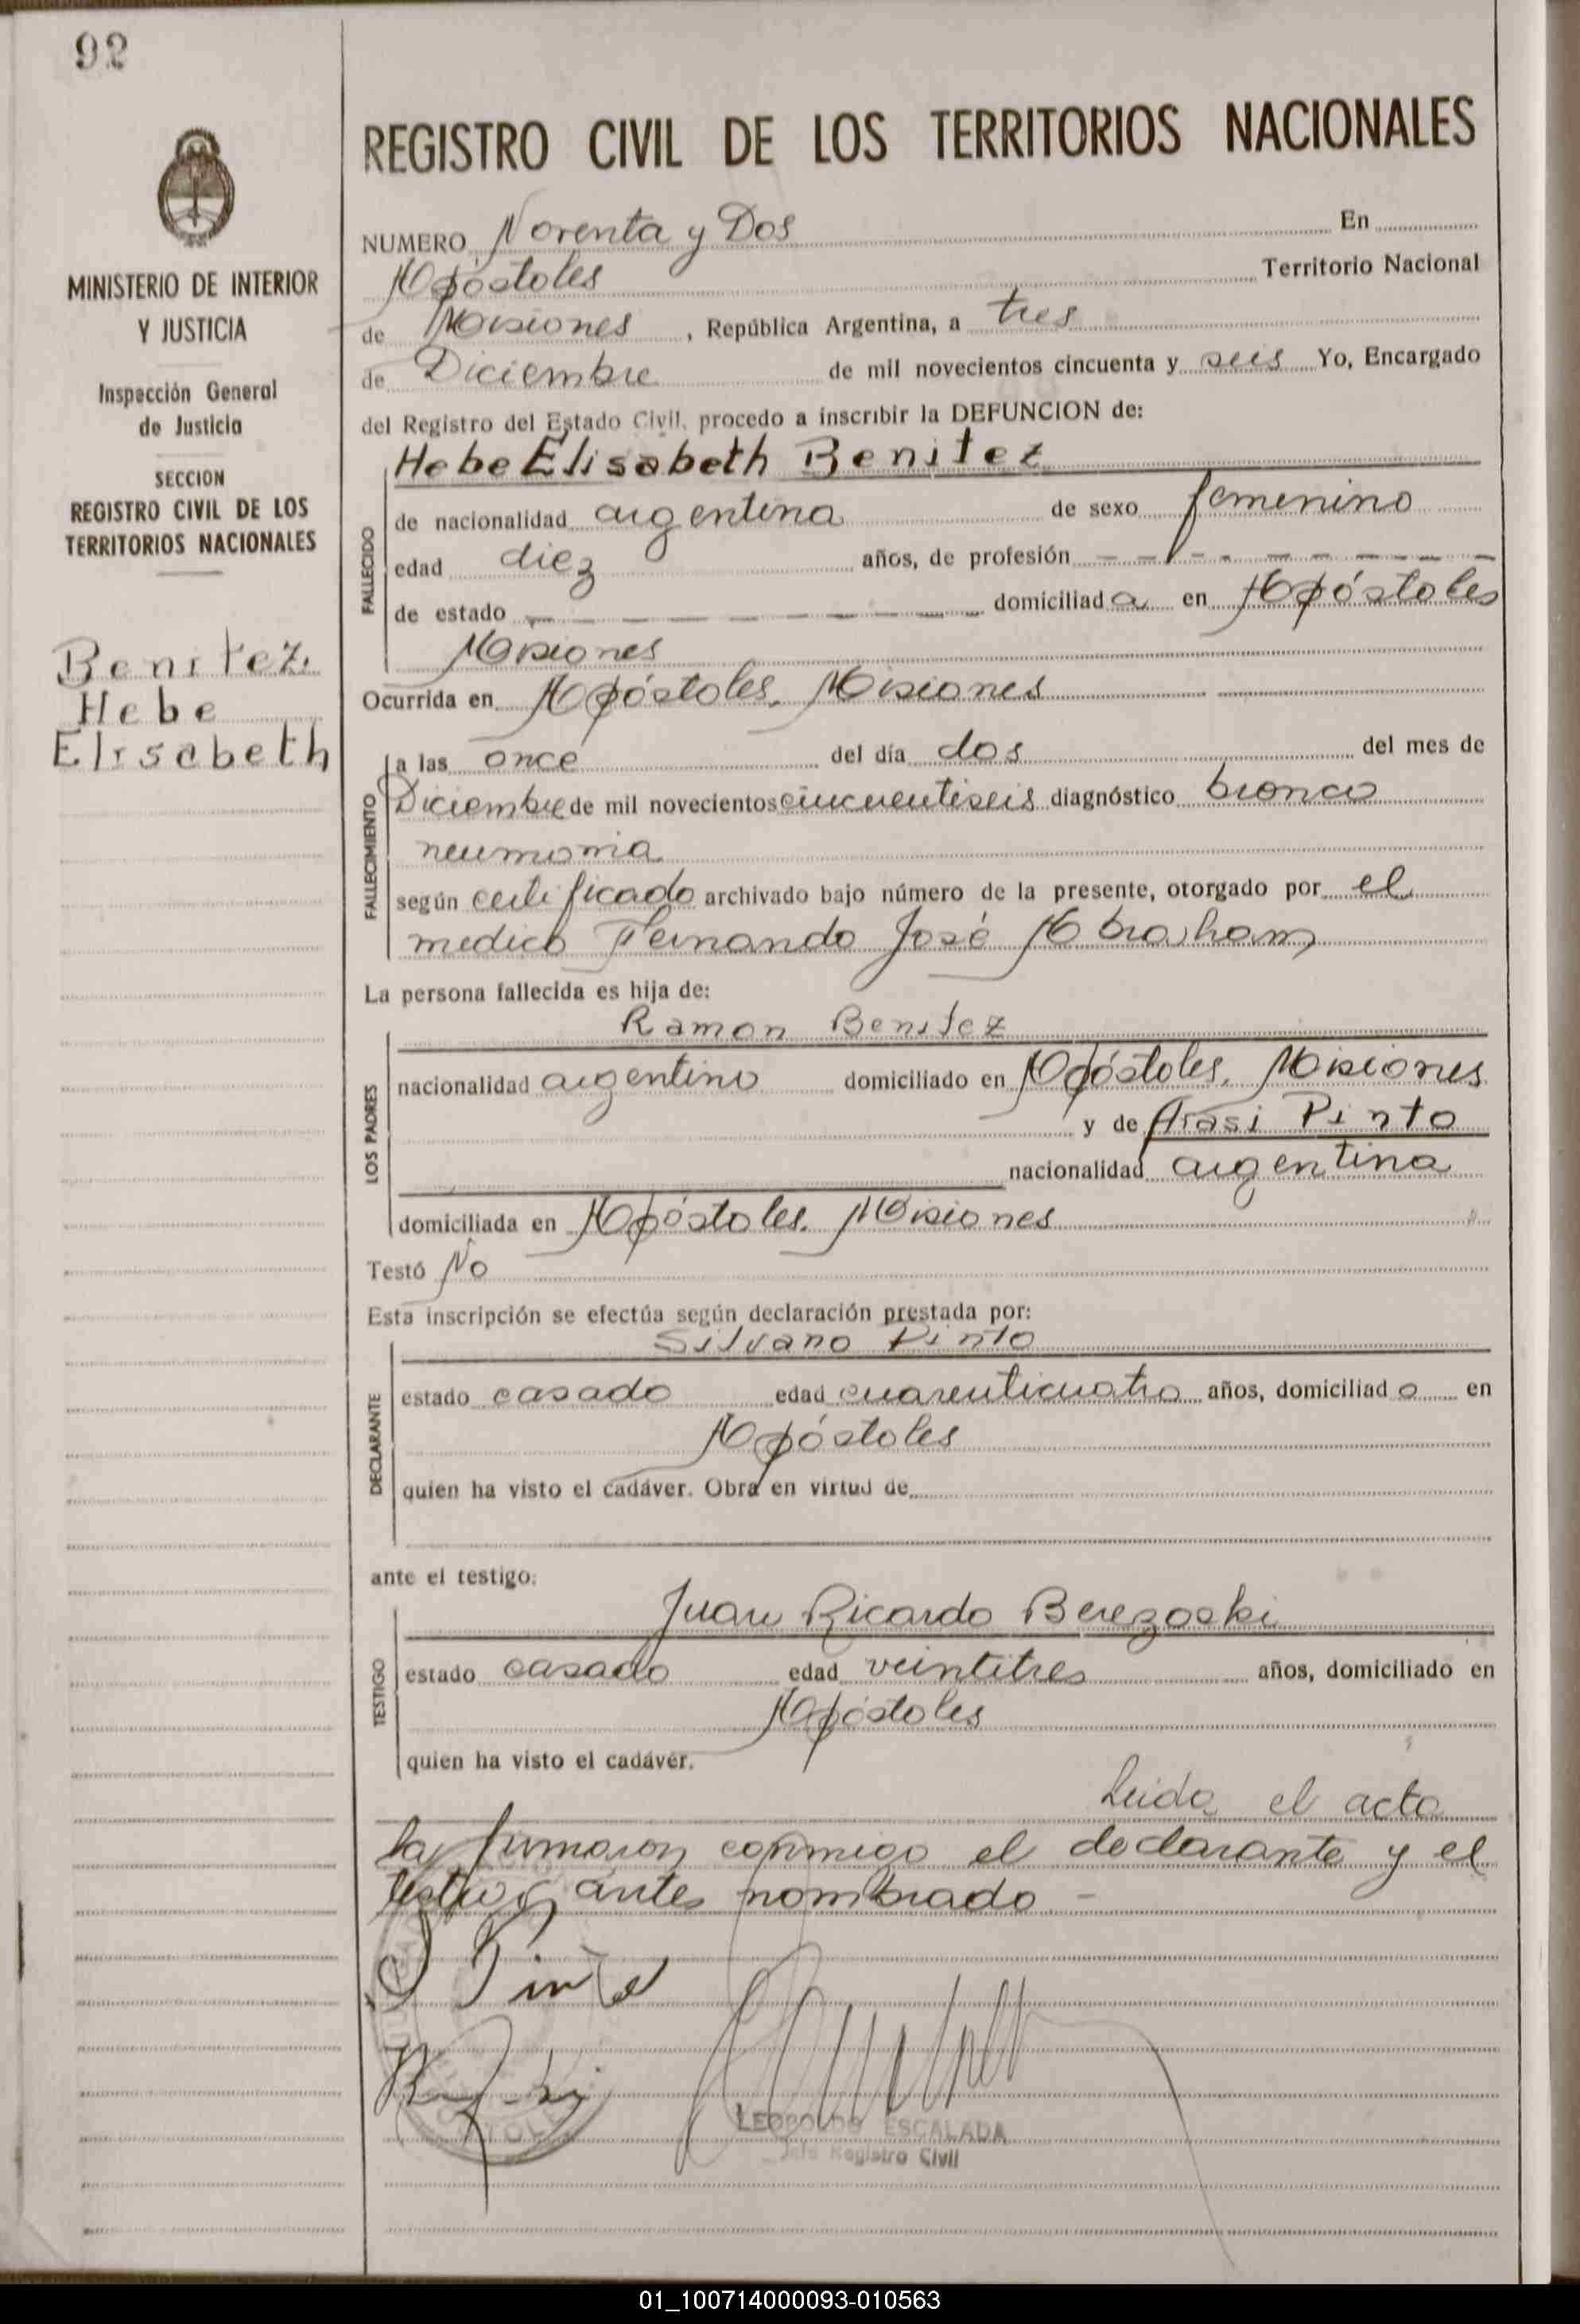 92
MINISTERIO DE INTERIOR
Y JUSTICIA
Inspección General
de Justicia
SECCION
REGISTRO CIVIL DE LOS
TERRITORIOS NACIONALES
Benitez
Hebe
Elisabeth
REGISTRO CIVIL DE LOS TERRITORIOS NACIONALES
NUMERO Noventa y Dos En
Apóstoles Territorio Nacional
de Misiones, República Argentina, a tres
de Diciembre de mil novecientos cincuenta y seis Yo, Encargado
del Registro del Estado Civil, procedo a inscribir la DEFUNCION de:
Hebe Elisabeth Benitez
FALLECIDO
de nacionalidad argentina de sexo femenino
edad diez años, de profesión
de estado domiciliada en Apóstoles
Misiones
Ocurrida en Apóstoles. Misiones
FALLECIMIENTO
a las once del día dos del mes de
Diciembre de mil novecientos cincuentiseis diagnóstico bronco
neumonia
según certificado archivado bajo número de la presente, otorgado por el
medico Fernando José Abraham
La persona fallecida es hija de:
Ramon Benitez
LOS PADRES
nacionalidad argentino domiciliado en Apóstoles. Misiones
y de Arasi Pinto
nacionalidad argentina
domiciliada en Apóstoles. Misiones
Testó No
Esta inscripción se efectúa según declaración prestada por:
Silvano Pinto
DECLARANTE
estado casado edad cuarenticuatro años, domiciliado en
Apóstoles
quien ha visto el cadáver. Obra en virtud de
ante el testigo:
Juan Ricardo Berezoski
TESTIGO
estado casado edad veintitres años, domiciliado en
Apóstoles
quien ha visto el cadáver.
Leida el acta
la firmaron conmigo el declarante y el
testigo antes nombrado -
S Pinto
LEOPOLDO ESCALADA
Jefe Registro Civil
01_100714000093-010563